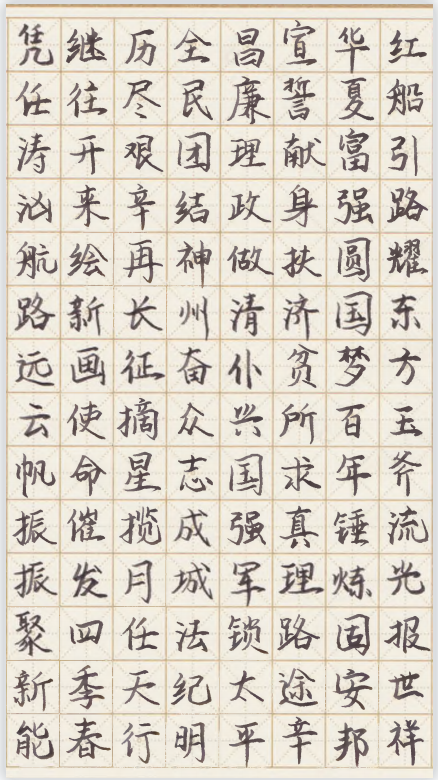 红船引路耀东方玉斧流光报世祥
华夏富强圆国梦百年锤炼固安邦
宣誓献身扶济贫所求真理路途辛
昌廉理政做清仆兴国强军锁太平
全民团结神州奋众志成城法纪明
历尽艰辛再长征摘星揽月任天行
继往开来绘新画使命催发四季春
凭任涛汹航路远云帆振振聚新能